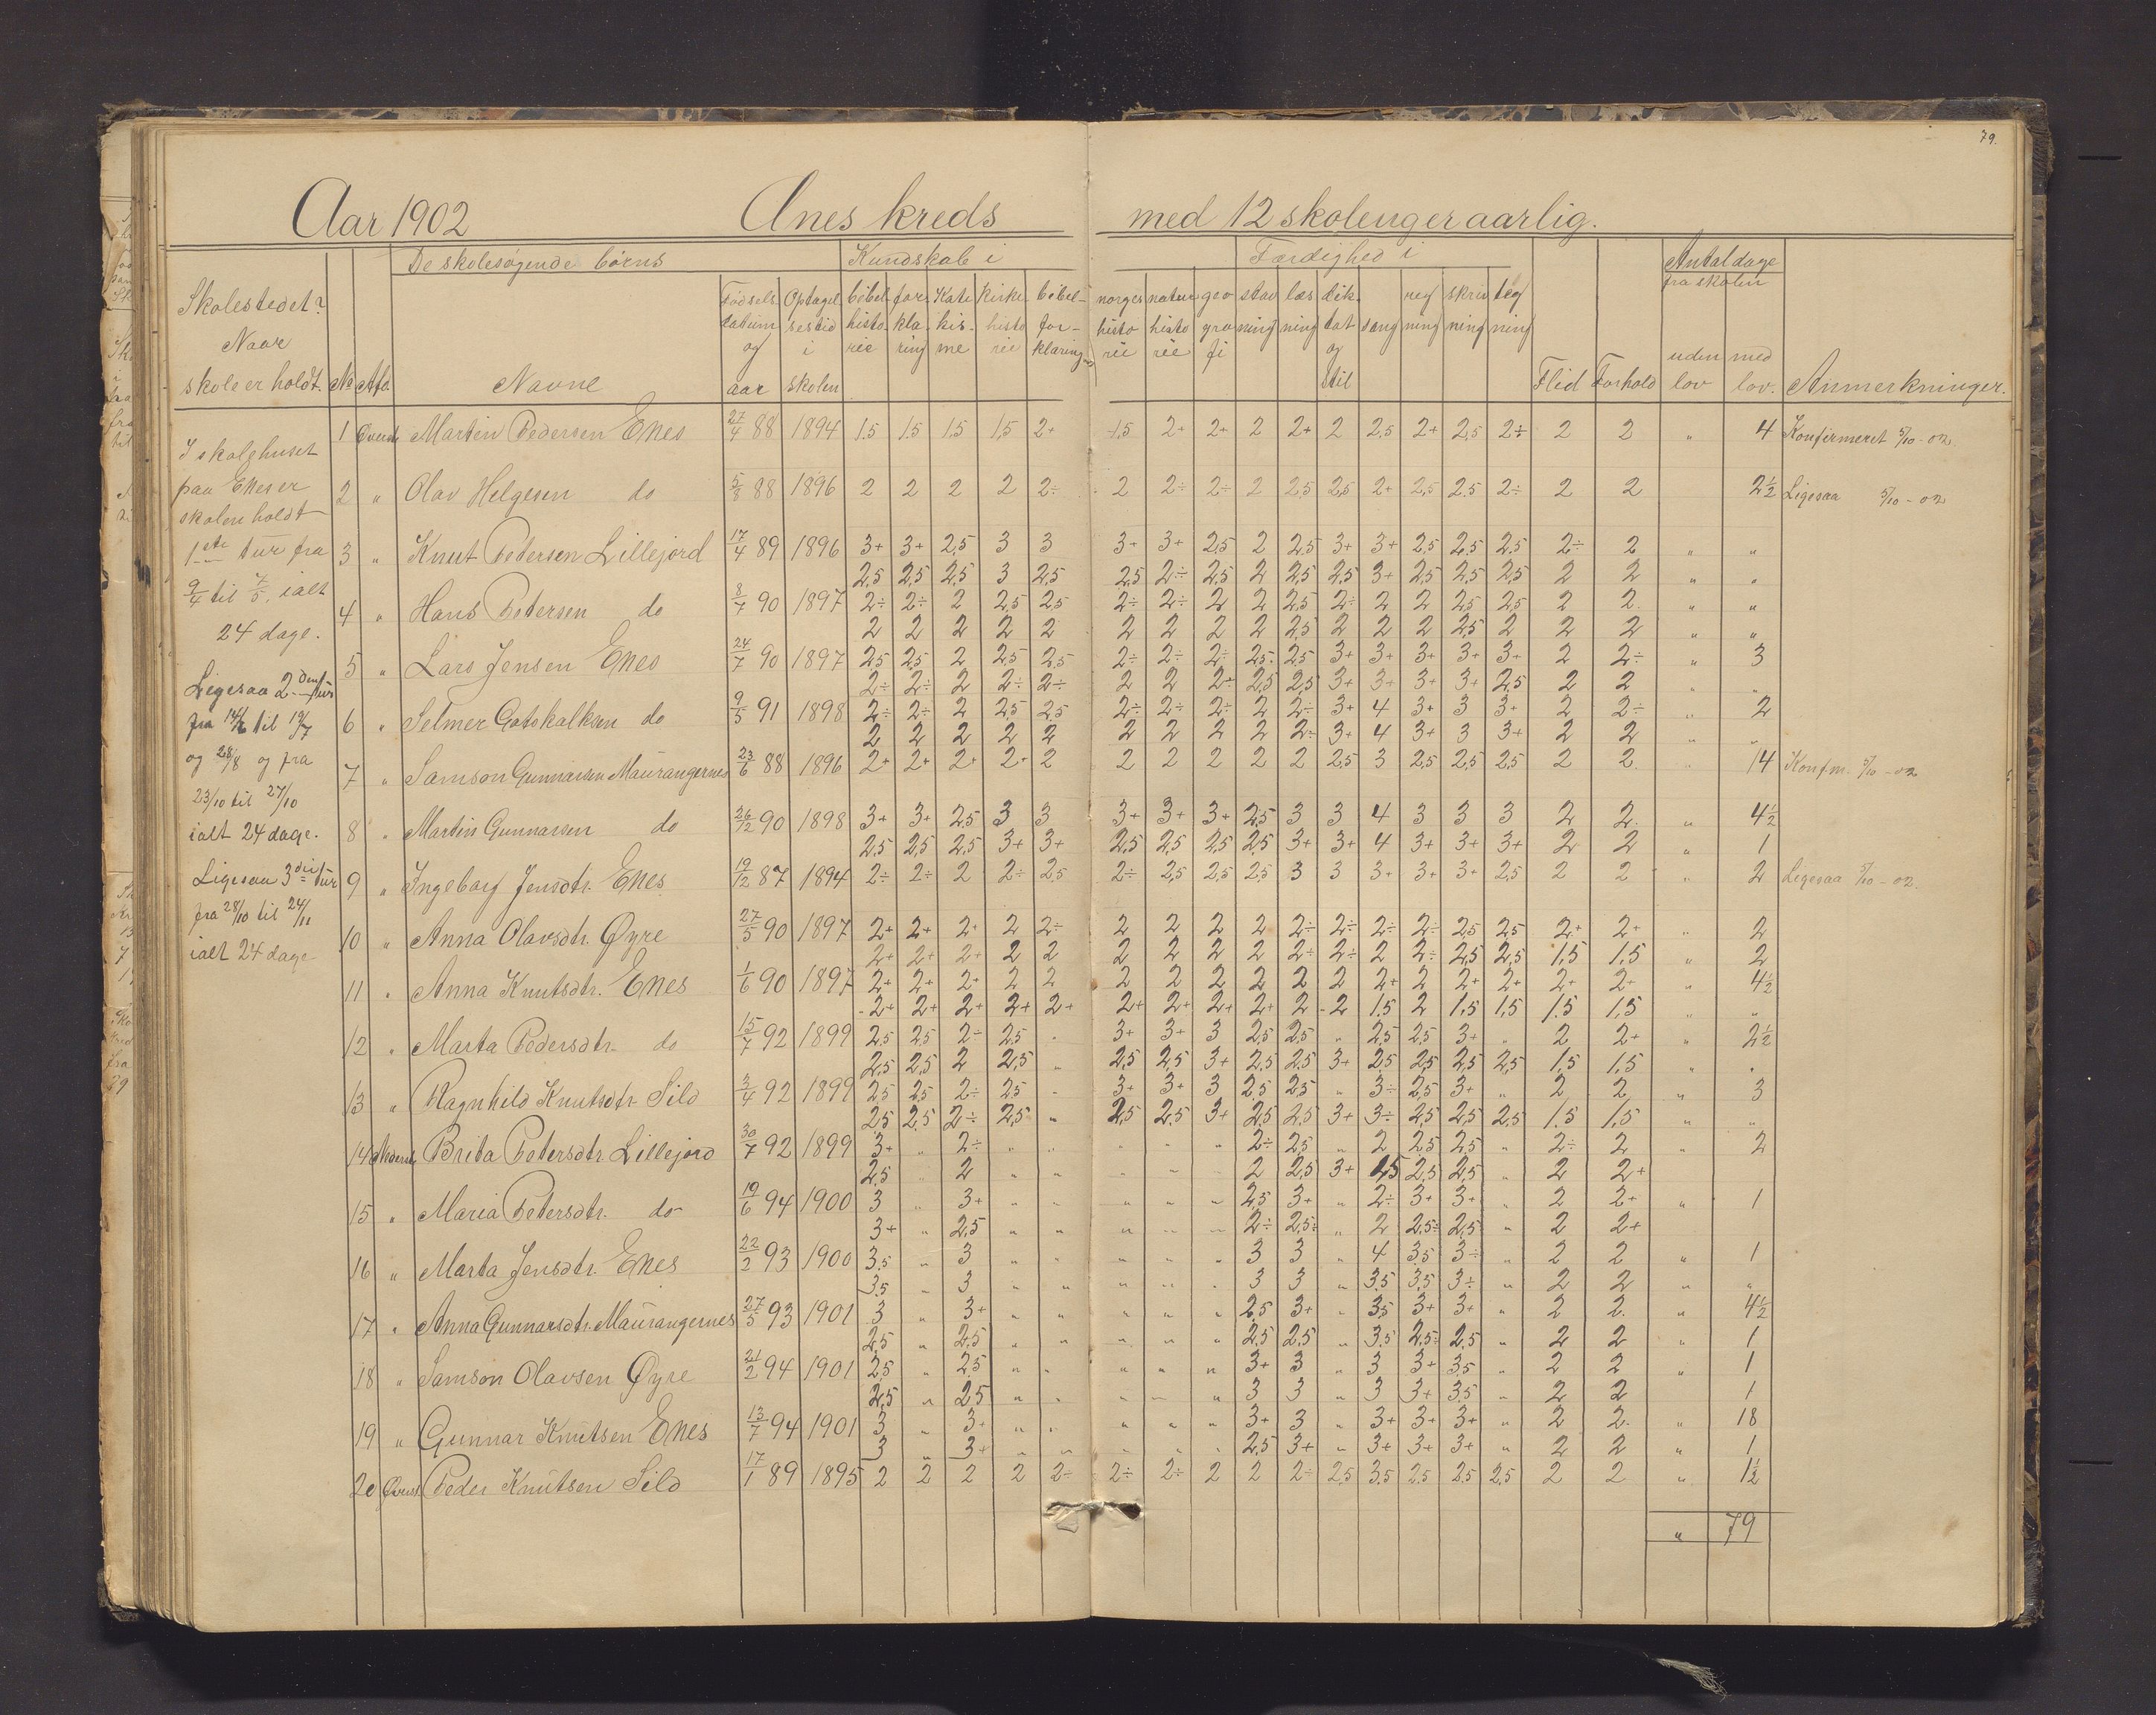 79.
Aar 1902 Ænes kreds med 12 skoleuger aarlig.
De skolesøgende børns Kundskab i Færdighed i Antal dage fra skolen
Skolestedet?
Naar
skole er holdt. No Afd. Navne Fødselsdatum og aar Optagelsestid i skolen bibelhistorie forklaring Katekisme kirkehistorie bibelforklaring norgeshistorie naturhistorie geografi stavning læsning diktat og stil sang regning skrivning tegning Flid Forhold uden lov med lov. Anmerkninger.
I skolehuset
paa Enes er
skolen holdt
1ste tur fra
9/4 til 7/5, ialt
24 dage.
Ligesaa 2den tur
fra 14/6 til 19/7
og 28/8 og fra
23/10 til 27/10
ialt 24 dage.
Ligesaa 3die tur
fra 28/10 til 24/11
ialt 24 dage
1 Øverste Martin Pedersen Enes 27/4 88 1894 1.5 1.5 1.5 1.5 2+ 1,5 2+ 2+ 2 2+ 2 2,5 2+ 2,5 2÷ 2 2 " 4 Konfirmeret 5/10-02
2 " Olav Helgesen do 5/8 88 1896 2 2 2 2 2÷ 2 2÷ 2÷ 2 2,5 2,5 2+ 2,5 2.5 2÷ 2 2 2½ Ligesaa 5/10-02
3 " Knut Petersen Lillejord 17/4 89 1896 3+ 3+ 2,5 3 3 3+ 3+ 2,5 2 2,5 3+ 3+ 2,5 2,5 2.5 2÷ 2 " "
2,5 2,5 2,5 3 2,5 2,5 2÷ 2,5 2 2,5 2,5 3+ 2,5 2,5 2,5 2 2 " "
4 " Hans Petersen do 8/7 90 1897 2÷ 2÷ 2 2,5 2,5 2÷ 2÷ 2 2 2,5 2÷ 2 2 2,5 2,5 2 2. " "
2 2 2 2 2 2 2 2 2 2,5 2 2 2 2,5 2 2 2 " "
5 " Lars Jensen Enes 24/7 90 1897 2,5 2,5 2 2,5 2,5 2÷ 2÷ 2÷ 2,5 2,5 3+ 3+ 3+ 3+ 3+ 2 2÷ " 3
2÷ 2÷ 2 2÷ 2÷ 2 2 2÷ 2,5 2,5 3+ 3+ 3+ 3+ 2,5 2 2 " "
6 " Selmer Gotskalksen do 9/5 91 1898 2÷ 2÷ 2 2,5 2,5 2÷ 2÷ 2÷ 2 2÷ 3+ 4 3+ 3 3+ 2 2÷ " 2
2 2 2 2 2 2 2 2 2 2÷ 3+ 4 3+ 3 3+ 2 2 " "
7 " Samson Gunnarsen Maurangernes 23/6 88 1896 2+ 2+ 2+ 2+ 2 2 2 2 2 2 2,5 3 2,5 2,5 2,5 2 2 " 14 Konfm. 5/10-02
8 " Martin Gunnarsen do 26/12 90 1898 3+ 3+ 2,5 3 3 3+ 3+ 3+ 2,5 3 3 4 3 3 3 2 2. " 4½
2,5 2,5 2,5 3+ 3+ 2,5 2,5 2,5 2,5 3+ 3+ 4 3+ 3+ 3+ 2 2 " 1
9 " Ingeborg Jensdtr. Enes 19/12 87 1894 2÷ 2÷ 2 2÷ 2,5 2÷ 2,5 2,5 2,5 3 3 3+ 3+ 3+ 2,5 2 2 " 2 Ligesaa 5/10-02.
10 " Anna Olavsdtr. Øyre 27/5 90 1897 2+ 2+ 2+ 2 2÷ 2 2 2 2 2÷ 2÷ 2÷ 2÷ 2,5 2,5 2+ 2+ " 2
2+ 2+ 2+ 2 2 2 2 2 2 2÷ 2÷ 2 2÷ 2,5 2,5 1,5 1,5 " 2
11 " Anna Knutsdtr. Enes 1/6 90 1897 2+ 2+ 2+ 2 2 2 2 2 2 2 2 2+ 2 2+ 2+ 2+ 2+ " 4½
2+ 2+ 2+ 2+ 2+ 2+ 2+ 2+ 2+ 2 2 1.5 2 1,5 1,5 1.5 1,5 " "
12 " Marta Pedersdtr. do 15/7 92 1899 2,5 2,5 2÷ 2,5 " 3+ 3+ 3 2,5 2,5 " 2,5 2,5 3+ " 2 2+ " 2½
2,5 2,5 2 2,5 " 2,5 2,5 3+ 2,5 2,5 3+ 2,5 2,5 2,5 2,5 1,5 1,5 " "
13 " Ragnhild Knutsdtr. Sild 3/4 92 1899 2,5 2,5 2÷ 2,5 " 3+ 3+ 3 2,5 2,5 " 3÷ 2,5 3+ " 2 2 " 3
2,5 2,5 2÷ 2,5 " 2,5 2,5 3+ 2,5 2,5 3+ 3÷ 2,5 2,5 2,5 1.5 1,5 " "
14 Nederste Brita Petersdtr. Lillejord 30/7 92 1899 3+ " 2÷ " " " " " 2÷ 2,5 " 2 2,5 2,5 " 2÷ 2 " 2
2,5 " 2 " " " " " 2 2,5 3+ 2,5 2,5 " 2 2+
15 " Maria Petersdtr. do 19/6 94 1900 3 " 3+ " " " " " 2,5 3+ " 2÷ 3+ 3+ " 2 2+ " 1
3+ " 2,5 " " " " " 2÷ 2,5÷ " 2 2,5÷ 2,5 " 2 2+
16 " Marta Jensdtr. Enes 22/2 93 1900 3,5 " 3 " " " " " 3 3 " 4 3,5 3÷ " 2 2 " 1
3,5 " 3 " " " " " 3 3 " 3,5 3,5 3÷ " 2 2 " "
17 " Anna Gunnarsdtr. Maurangernes 27/5 93 1901 3 " 3+ " " " " " 2,5 3+ " 3,5 3+ 3+ " 2 2. " 4½
2,5 " 2,5 " " " " " 2,5 2,5 " 3,5 2,5÷ 2,5 " 2 2 " 1
18 " Samson Olavsen Øyre 21/2 94 1901 2,5 " 2,5 " " " " " 3+ 3 " 3 3+ 3,5 " 2 2 " 1
2,5 " 2,5 " " " " " 3 3 " 3 3+ 3,5 " 2 2 1
19 " Gunnar Knutsen Enes 13/7 94 1901 3 " 3+ " " " " " 3+ 3 " 3+ 3+ 3+ " 2 2. " 18
3 " 3+ " " " " " 2,5 3+ " 3+ 3+ 3+ " 2 2 " 1
20 Øverst Peder Knutsen Sild 17/1 89 1895 2 2 2 2 2÷ 2÷ 2÷ 2 2 2÷ 2,5 3,5 2,5 2,5 2,5 2 2 " 1½
" 79